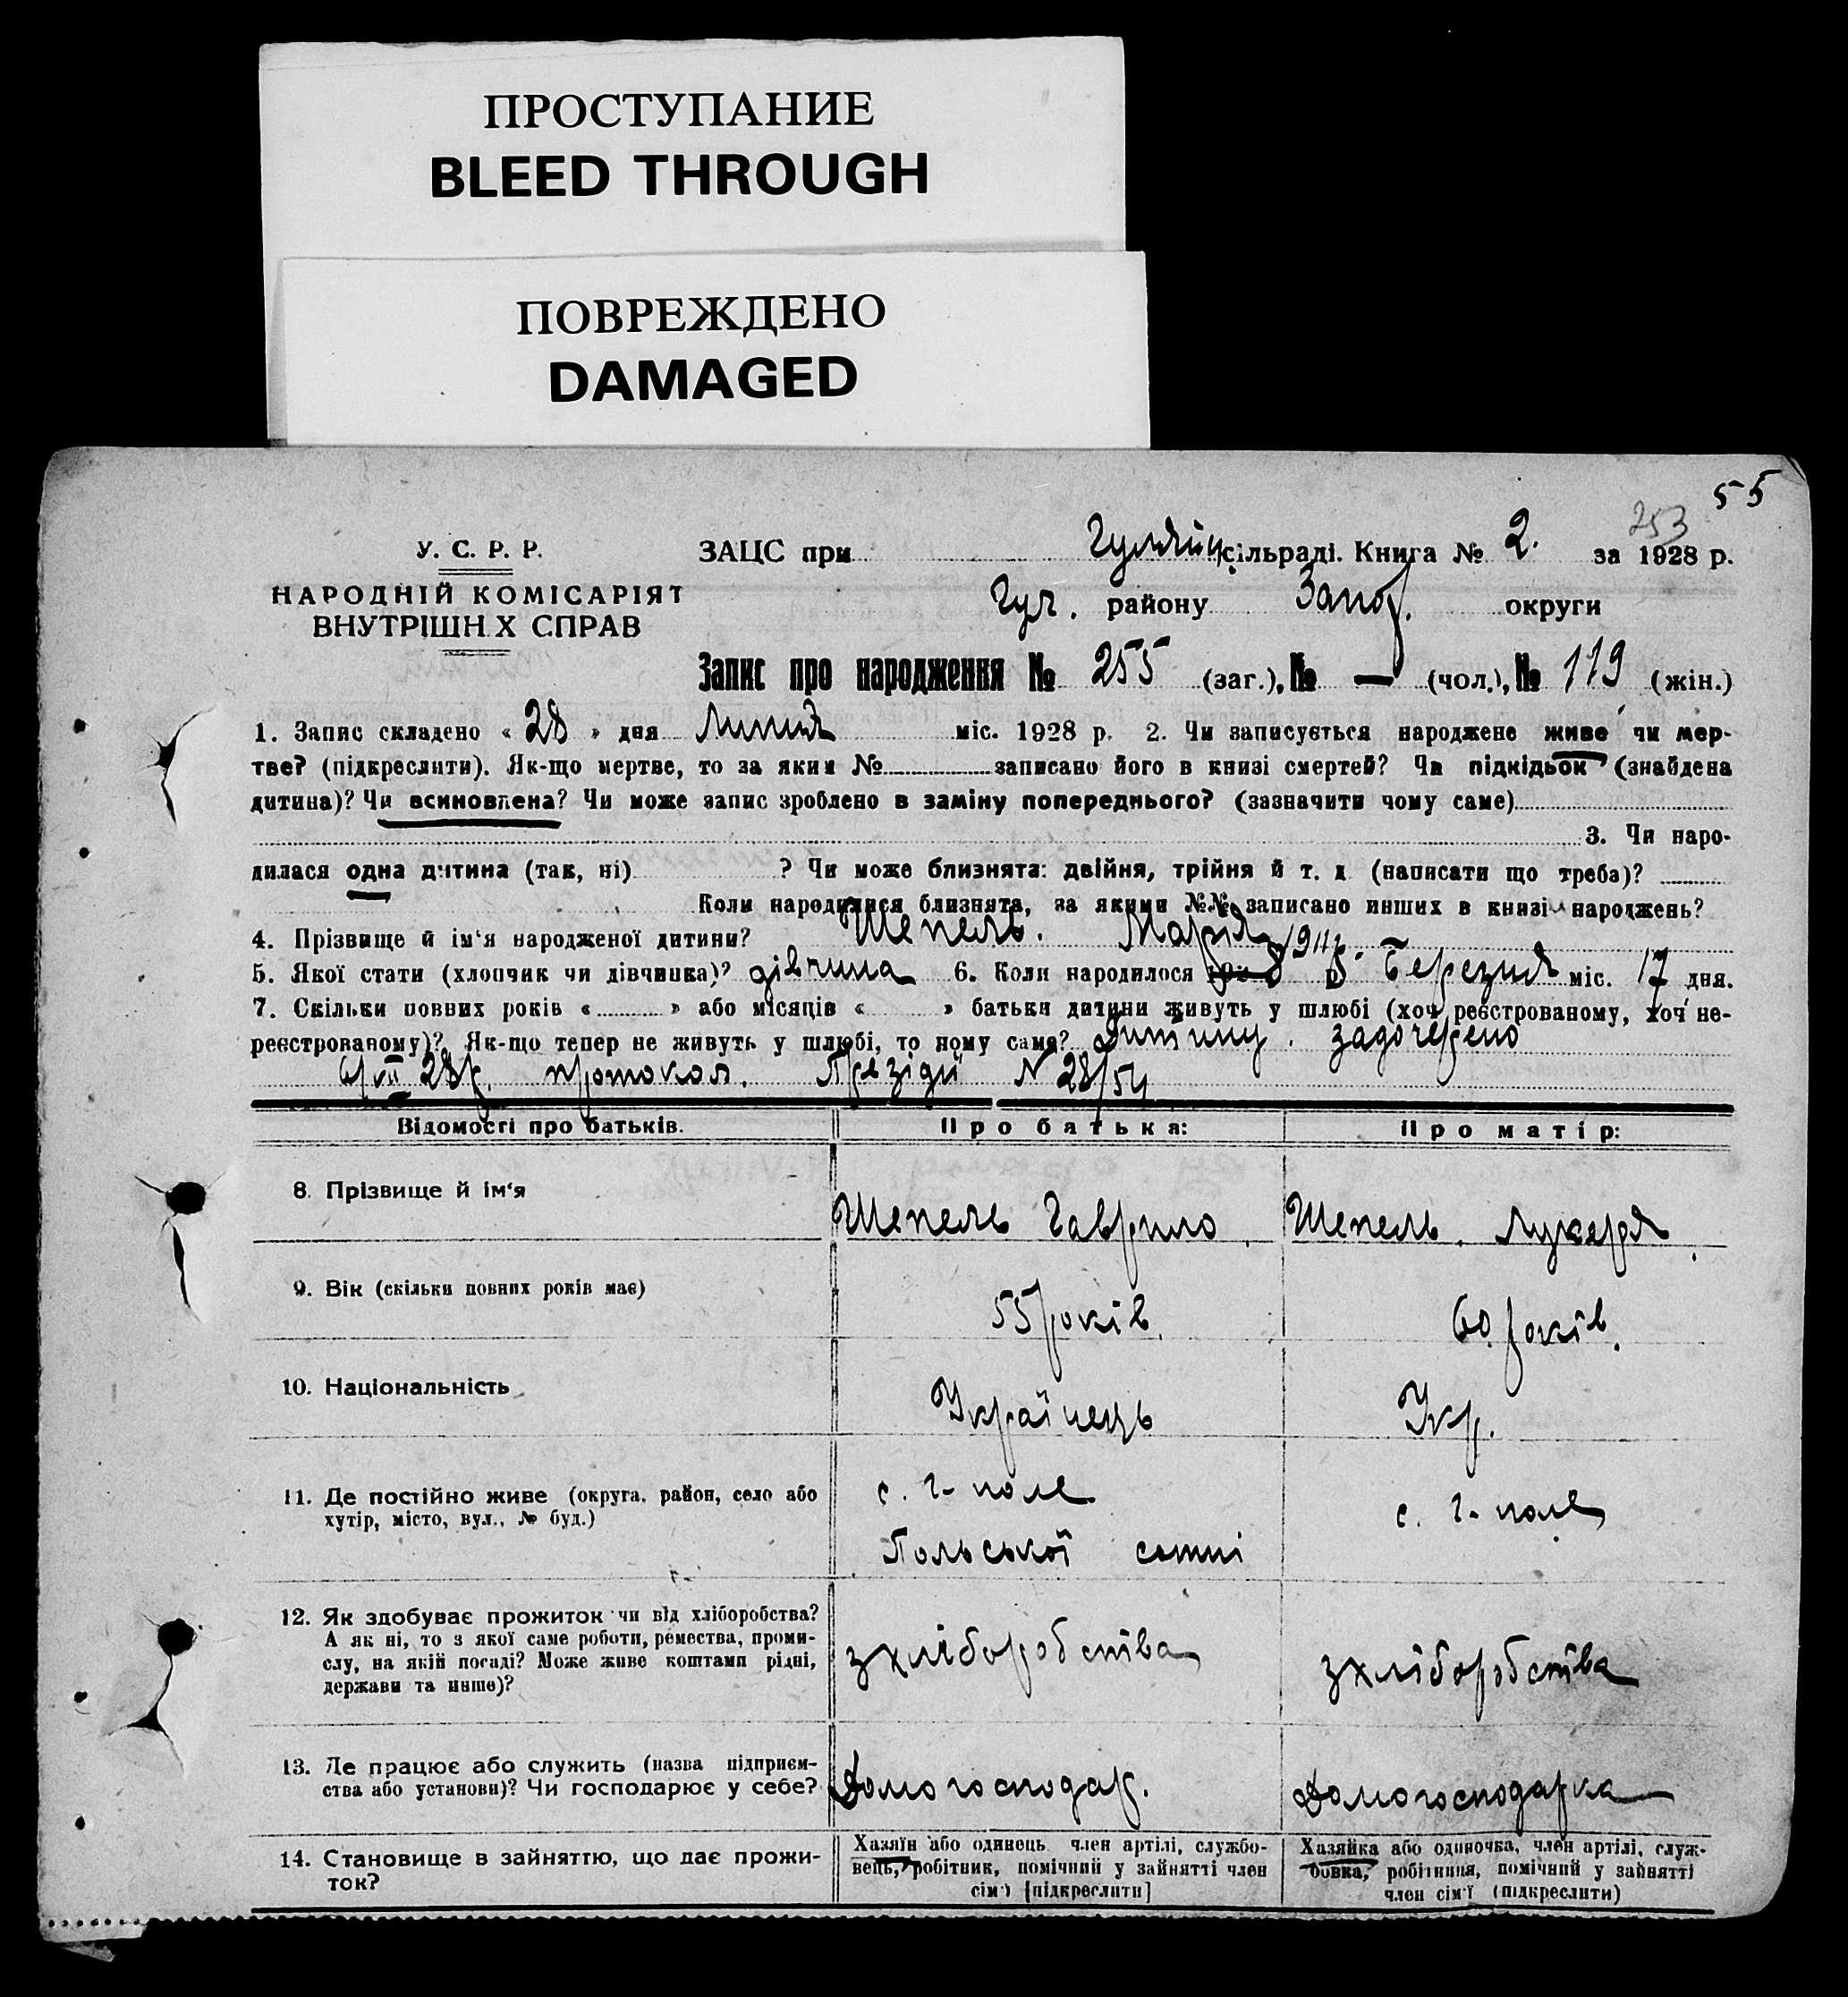 ПРОСТУПАНИЕ
BLEED THROUGH
ПОВРЕЖДЕНО
DAMAGED
55
253
У. С. Р. Р.
НАРОДНІЙ КОМІСАРІЯТ
ВНУТРІШН Х СПРАВ
ЗАЦС при Гуляйп. сільраді. Книга № 2. за 1928 р.
Гул. району Запор. округи
Запис про народження № 255 (заг.), № — (чол.), № 119 (жін.)
1. Запис складено « 28 » дня Липня міс. 1928 р. 2. Чи записується народжене живе чи мер-
тве? (підкреслити). Як-що мертве, то за яким № записано його в книзі смертей? Чи підкідьок (знайдена
дитина)? Чи всиновлена? Чи може запис зроблено в заміну попереднього? (зазначити чому саме)
3. Чи наро-
дилася одна дитина (так, ні) ? Чи може близнята: двійня, трійня й т. д (написати що треба)?
Коли народилися близнята, за якими №№ записано инших в книзі народжень?
4. Прізвище й ім'я народженої дитини? Шепель. Марія
5. Якої стати (хлопчик чи дівчинка)? дівчина 6. Коли народилося р. Березня міс. 17 дня.
7. Скільки повних років « » або місяців « » батьки дитини живуть у шлюбі (хоч реєстрованому, хоч не-
реєстрованому)? Як-що тепер не живуть у шлюбі, то чому саме? Дитину. задочерено
VII 28р. протокол. Презідії № 28/54
Відомості про батьків. Про батька: Про матір:
8. Прізвище й ім'я Шепель Гаврило. Шепель. Лукеря.
9. Вік (скільки повних років має) 55 років. 60 років.
10. Національність Українець Укр.
11. Де постійно живе (округа, район, село або
хутір, місто, вул., № буд.)
с. Г-поле
Польської сотні
с. Г-поле
12. Як здобуває прожиток чи від хліборобства?
А як ні, то з якої саме роботи, ремества, проми-
слу, на якій посаді? Може живе коштами рідні,
держави та инше)?
з хліборобства
з хліборобства
13. Де працює або служить (назва підприєм-
ства або установи)? Чи господарює у себе?
Домогосподар.
Домогосподарка
14. Становище в зайняттю, що дає прожи-
ток?
Хазяїн або одинець член артілі, службо-
вець, робітник, помічний у зайнятті член
сім'ї [підкреслити]
Хазяйка або одиночка, член артілі, служ-
бовка, робітниця, помічний у зайнятті
член сім'ї (підкреслити)